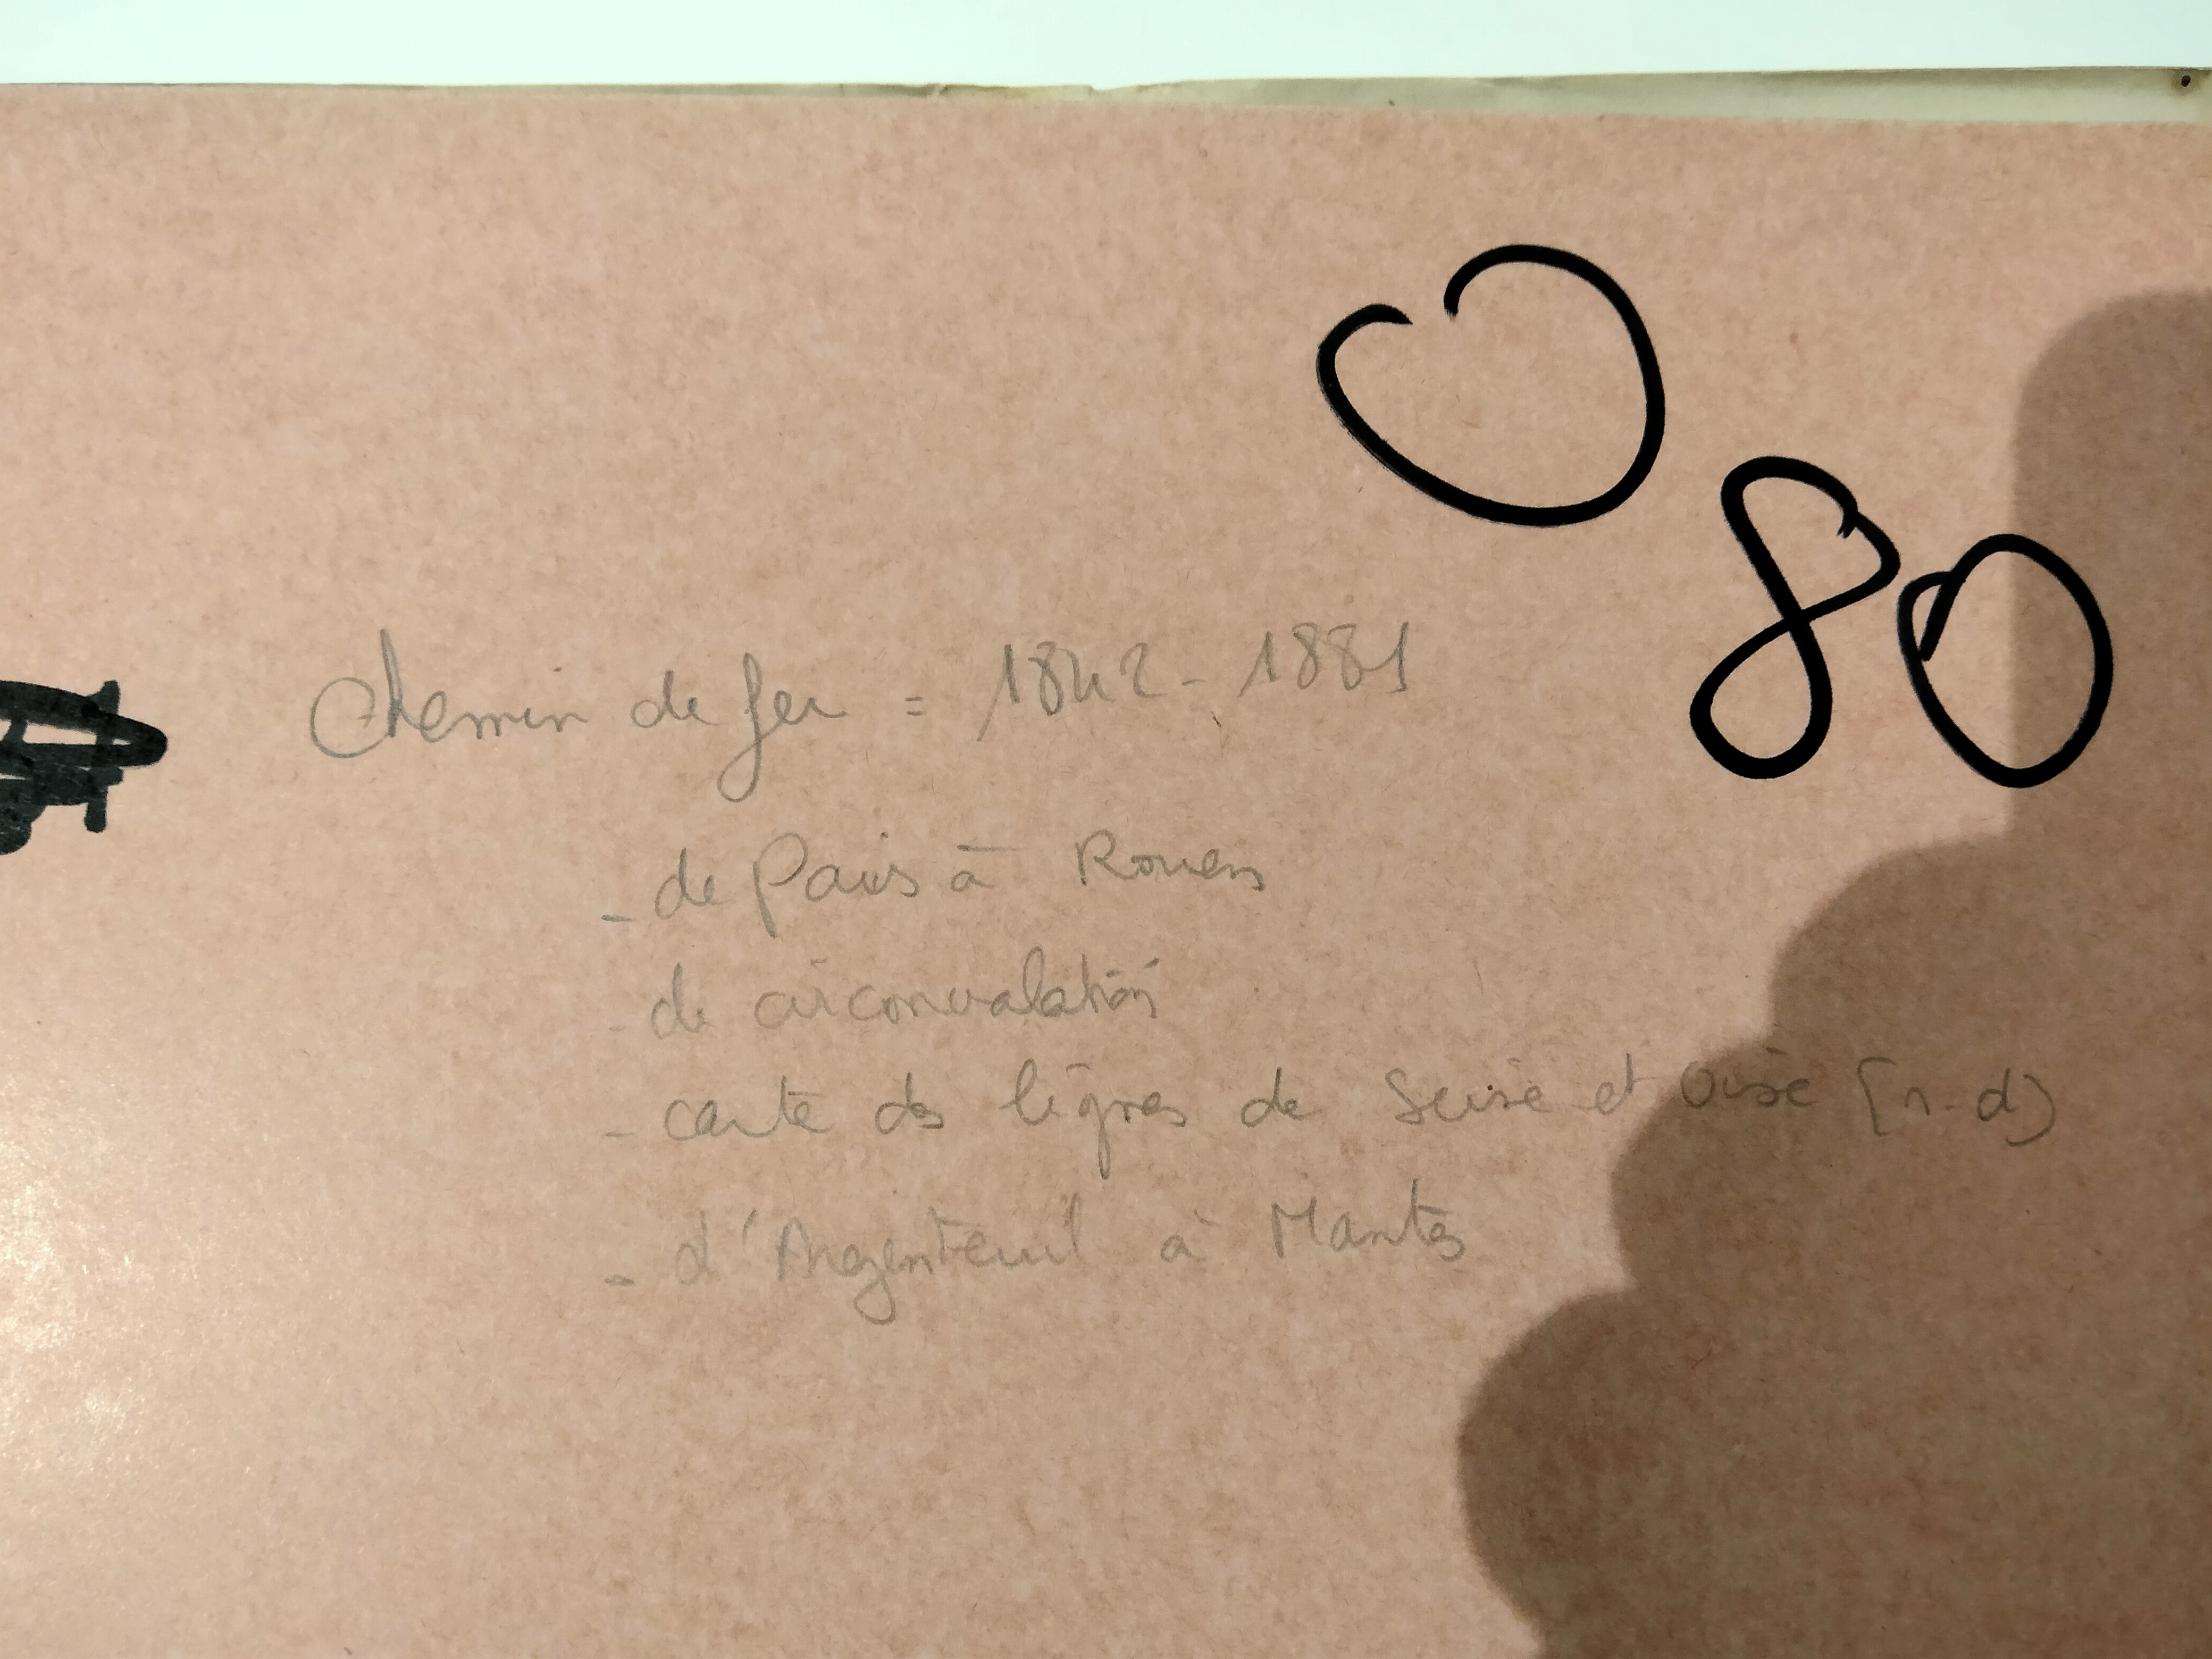 080
Chemin de fer = 1842 - 1881
- de Paris à Rouen
- de circonvalation
- carte des lignes de Seine et Oise [n.d)
- d'Argenteuil à Mantes